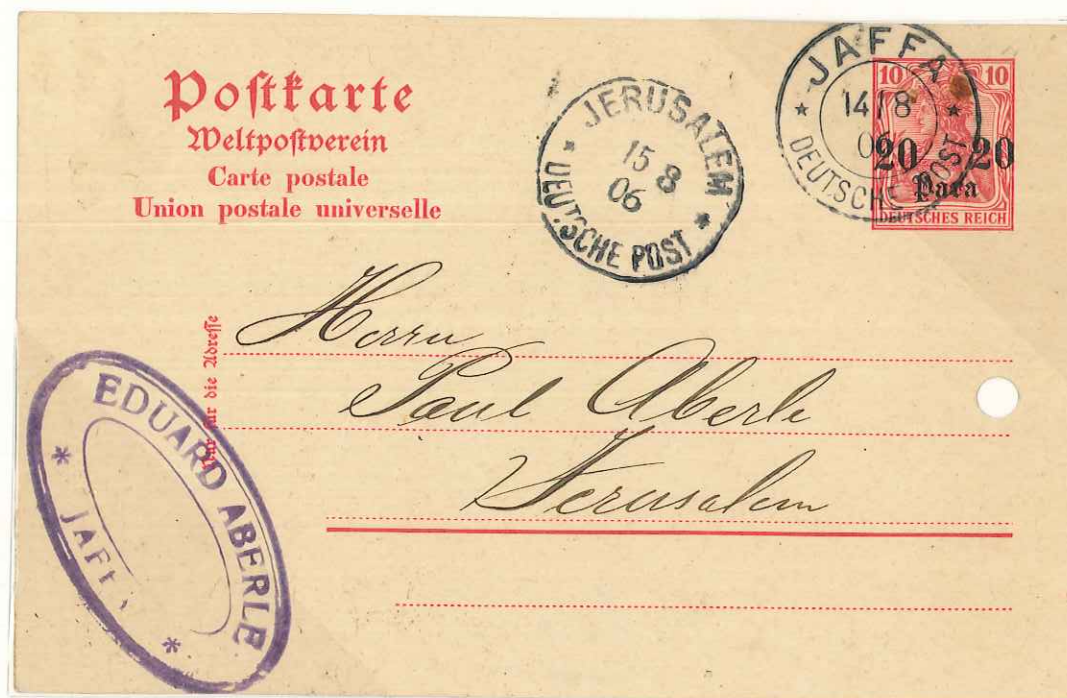 Postkarte
Weltpostverein
Carte postale
Union postale universelle
JERUSALEM
15 8
06
DEUTSCHE POST
JAFFA
14 8
06
DEUTSCHE POST
10 10
20 20
Para
DEUTSCHES REICH
Nur für die Adresse
Herrn
Paul Aberle
Jerusalem
EDUARD ABERLE
JAFFA